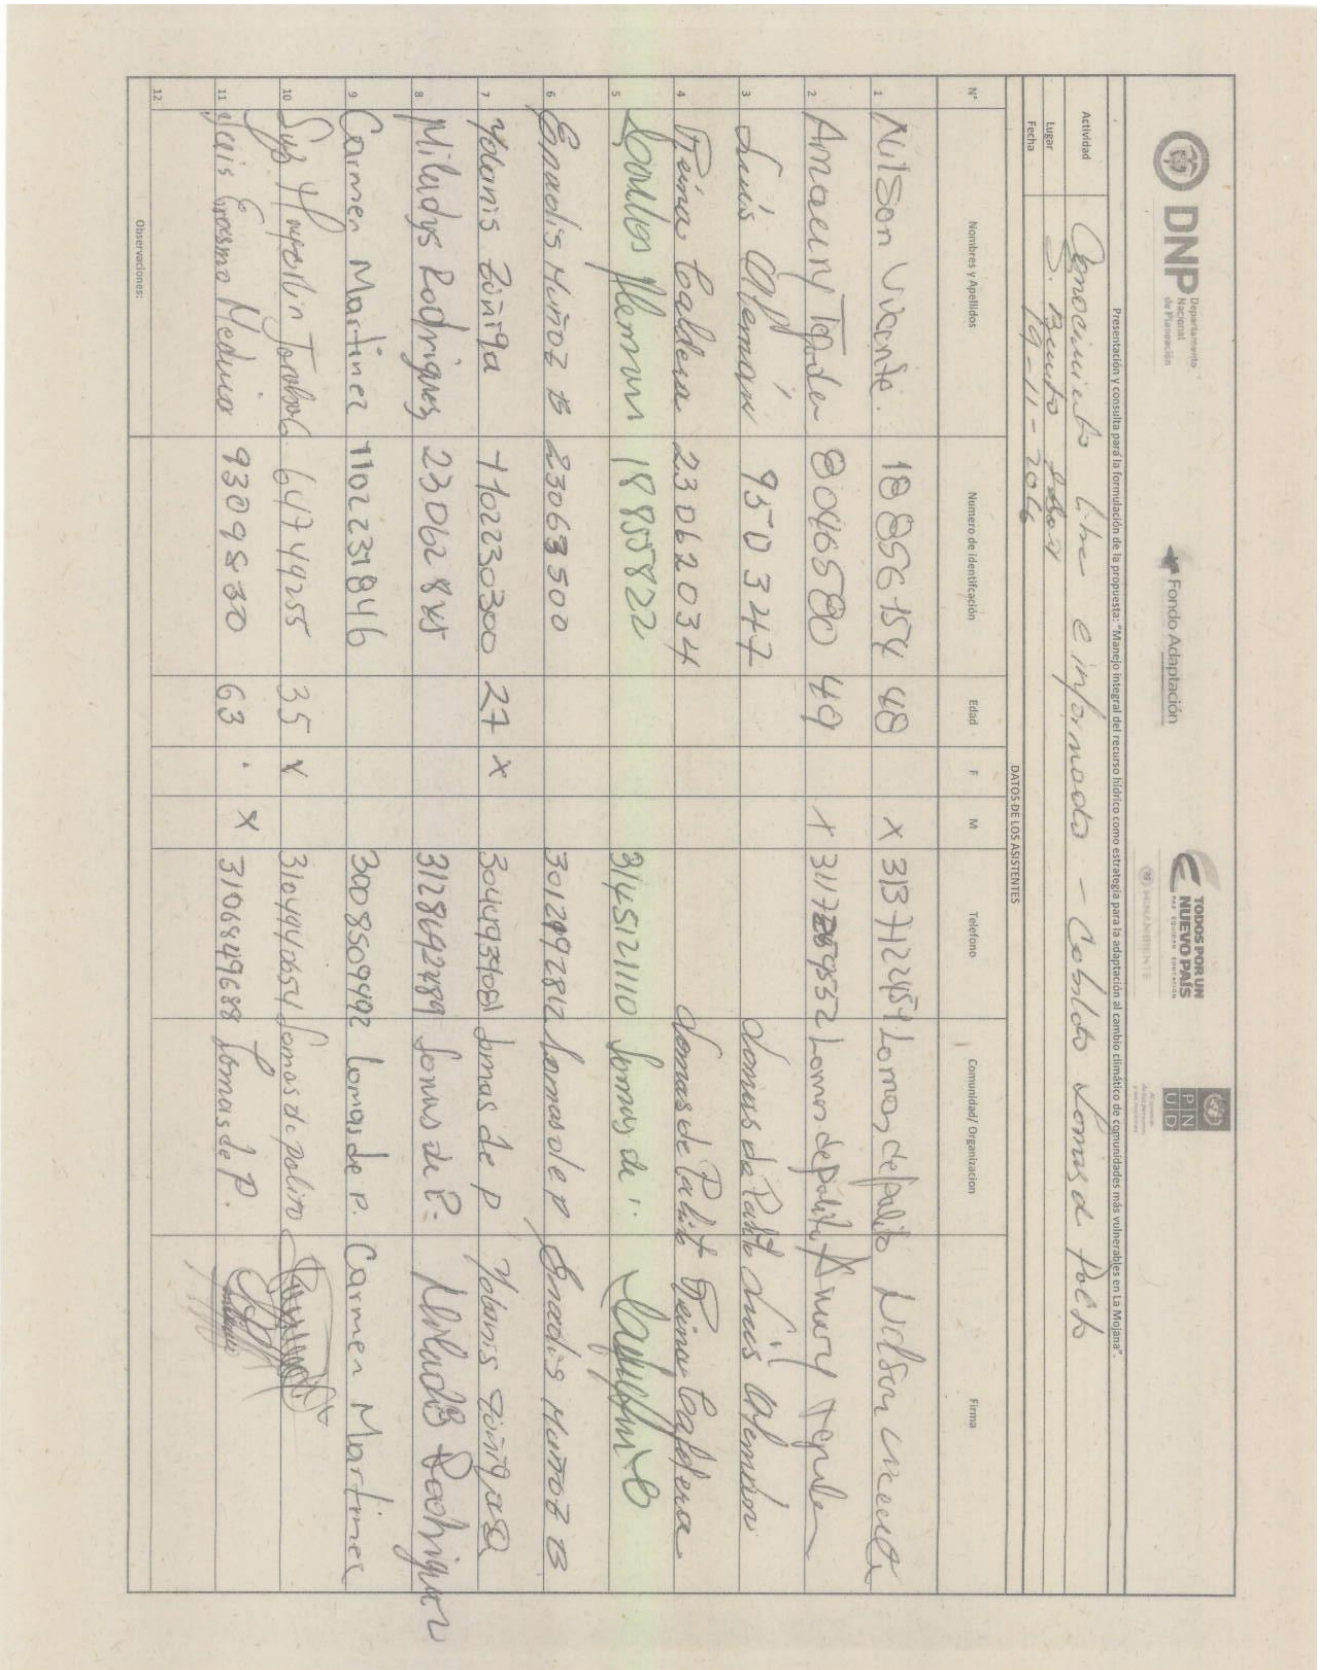 DNP Departamento
Nacional
de Planeación
Fondo Adaptación
TODOS POR UN
NUEVO PAÍS
PAZ EQUIDAD EDUCACIÓN
MINAMBIENTE
PNUD
Presentación y consulta para la formulación de la propuesta: "Manejo integral del recurso hídrico como estrategia para la adaptación al cambio climático de comunidades más vulnerables en La Mojana".
Actividad Conocimiento libre e informado - Cabildo Lomas de Palito
Lugar S. Benito Abad
Fecha 19-11-2016
DATOS DE LOS ASISTENTES
N° Nombres y Apellidos Numero de identifcación Edad F M Telefono Comunidad/ Organizacion Firma
1 Nilson Vicente. 18856154 48 X 3137122451 Lomas de palito Nilson Vicente
2 Amaury 8046580 49 X Lomas de palito Amaury
3 Luis Alemán 9350347 Lomas de Palito Luis Alemán
4 Reina Caldera 23062034 Lomas de Palito Reina Caldera
5 18855822 3145121110 Lomas de
6 Enadis Muñoz B 23063500 Lomas de p Enadis Muñoz B
7 Yobanis Zúñiga 1102230300 27 X Lomas de p Yobanis Zúñiga
8 Miladys Rodriguez 3128692489 Lomas de P. Miladis Rodriguez
9 Carmen Martinez 1102231846 3008509492 Lomas de P. Carmen Martinez
10 64749255 35 X Lomas de palito
11 Erasmo 63 X 3106849688 Lomas de P.
12
Observaciones: